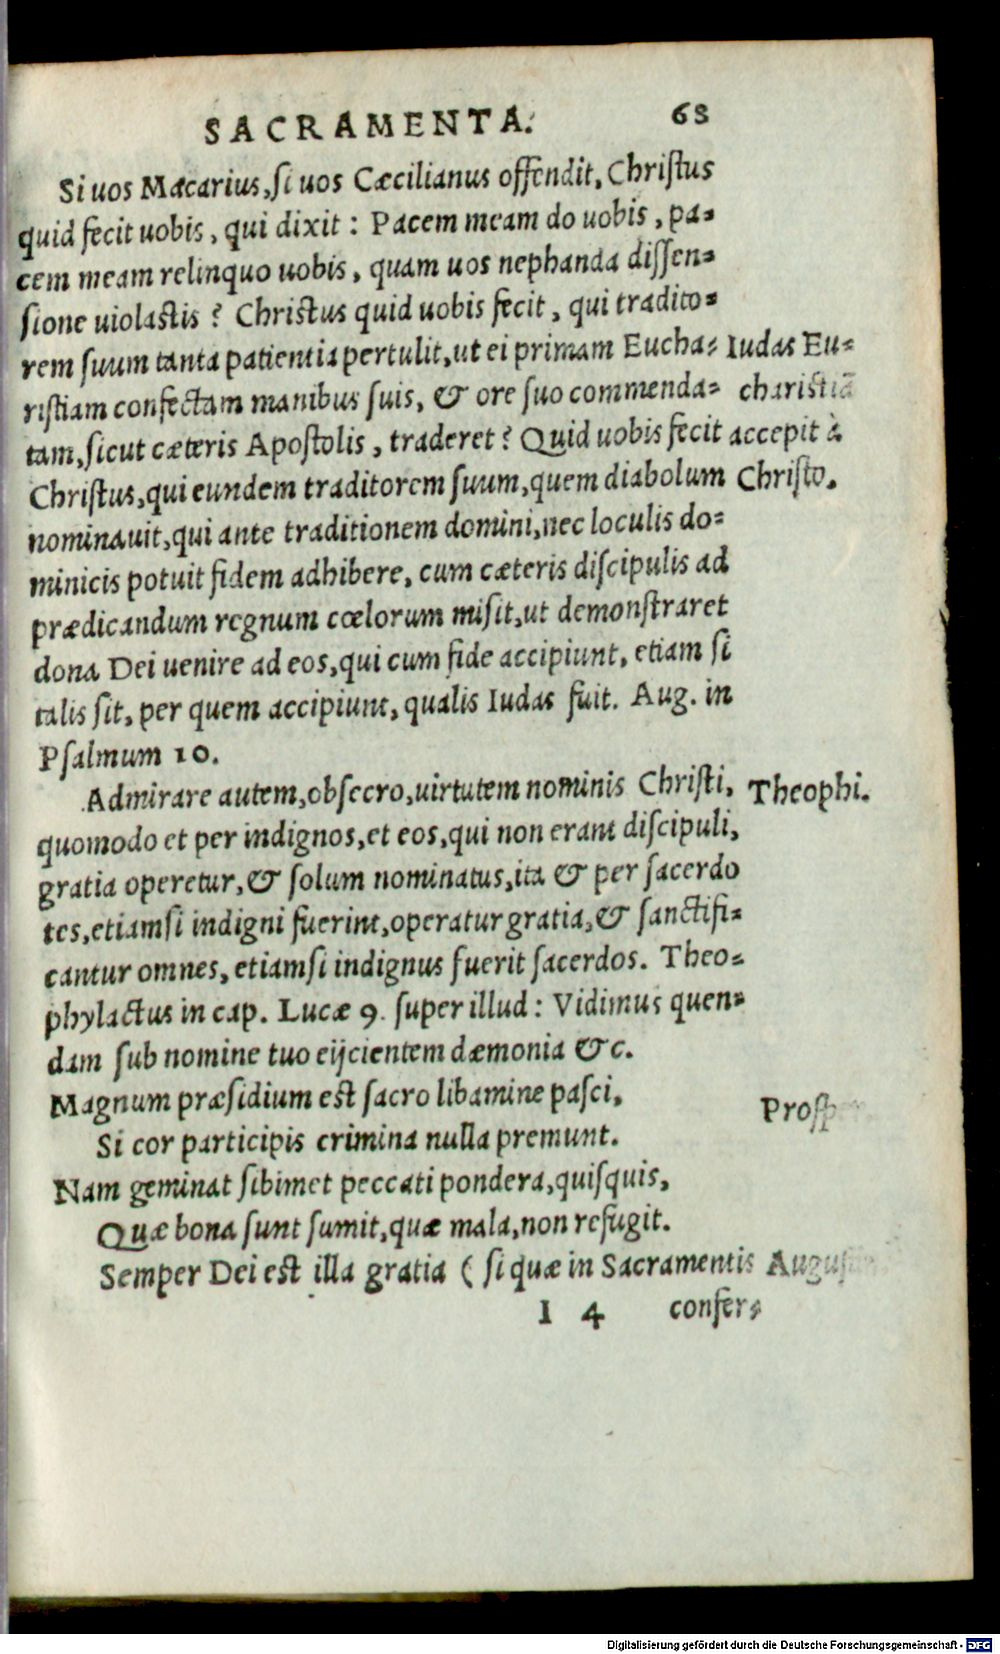 SACRAMENTA. 68
Si uos Macarius, si uos Cæcilianus offendit, Christus
quid fecit uobis, qui dixit : Pacem meam do uobis, pa=
cem meam relinquo uobis, quam uos nephanda dissen=
sione uiolastis ? Christus quid uobis fecit, qui tradito=
rem suum tanta patientia pertulit, ut ei primam Eucha=
ristiam confectam manibus suis, & ore suo commenda=
tam, sicut cæteris Apostolis, traderet ? Quid uobis fecit
Christus, qui eundem traditorem suum, quem diabolum
nominauit, qui ante traditionem domini, nec loculis do=
minicis potuit fidem adhibere, cum cæteris discipulis ad
prædicandum regnum cœlorum misit, ut demonstraret
dona Dei uenire ad eos, qui cum fide accipiunt, etiam si
talis sit, per quem accipiunt, qualis Iudas fuit. Aug. in
Psalmum 10.
Iudas Eu=
charistiā
accepit à
Christo.
Admirare autem, obsecro, uirtutem nominis Christi,
quomodo et per indignos, et eos, qui non erant discipuli,
gratia operetur, & solum nominatus, ita & per sacerdo
tes, etiamsi indigni fuerint, operatur gratia, & sanctifi=
cantur omnes, etiamsi indignus fuerit sacerdos. Theo=
phylactus in cap. Lucæ 9. super illud : Vidimus quen=
dam sub nomine tuo eijcientem dæmonia &c.
Theophi.
Magnum præsidium est sacro libamine pasci,
Si cor participis crimina nulla premunt.
Nam geminat sibimet peccati pondera, quisquis,
Quæ bona sunt sumit, quæ mala, non refugit.
Semper Dei est illa gratia ( si quæ in Sacramentis
I 4 confer=
Digitalisierung gefördert durch die Deutsche Forschungsgemeinschaft - DFG